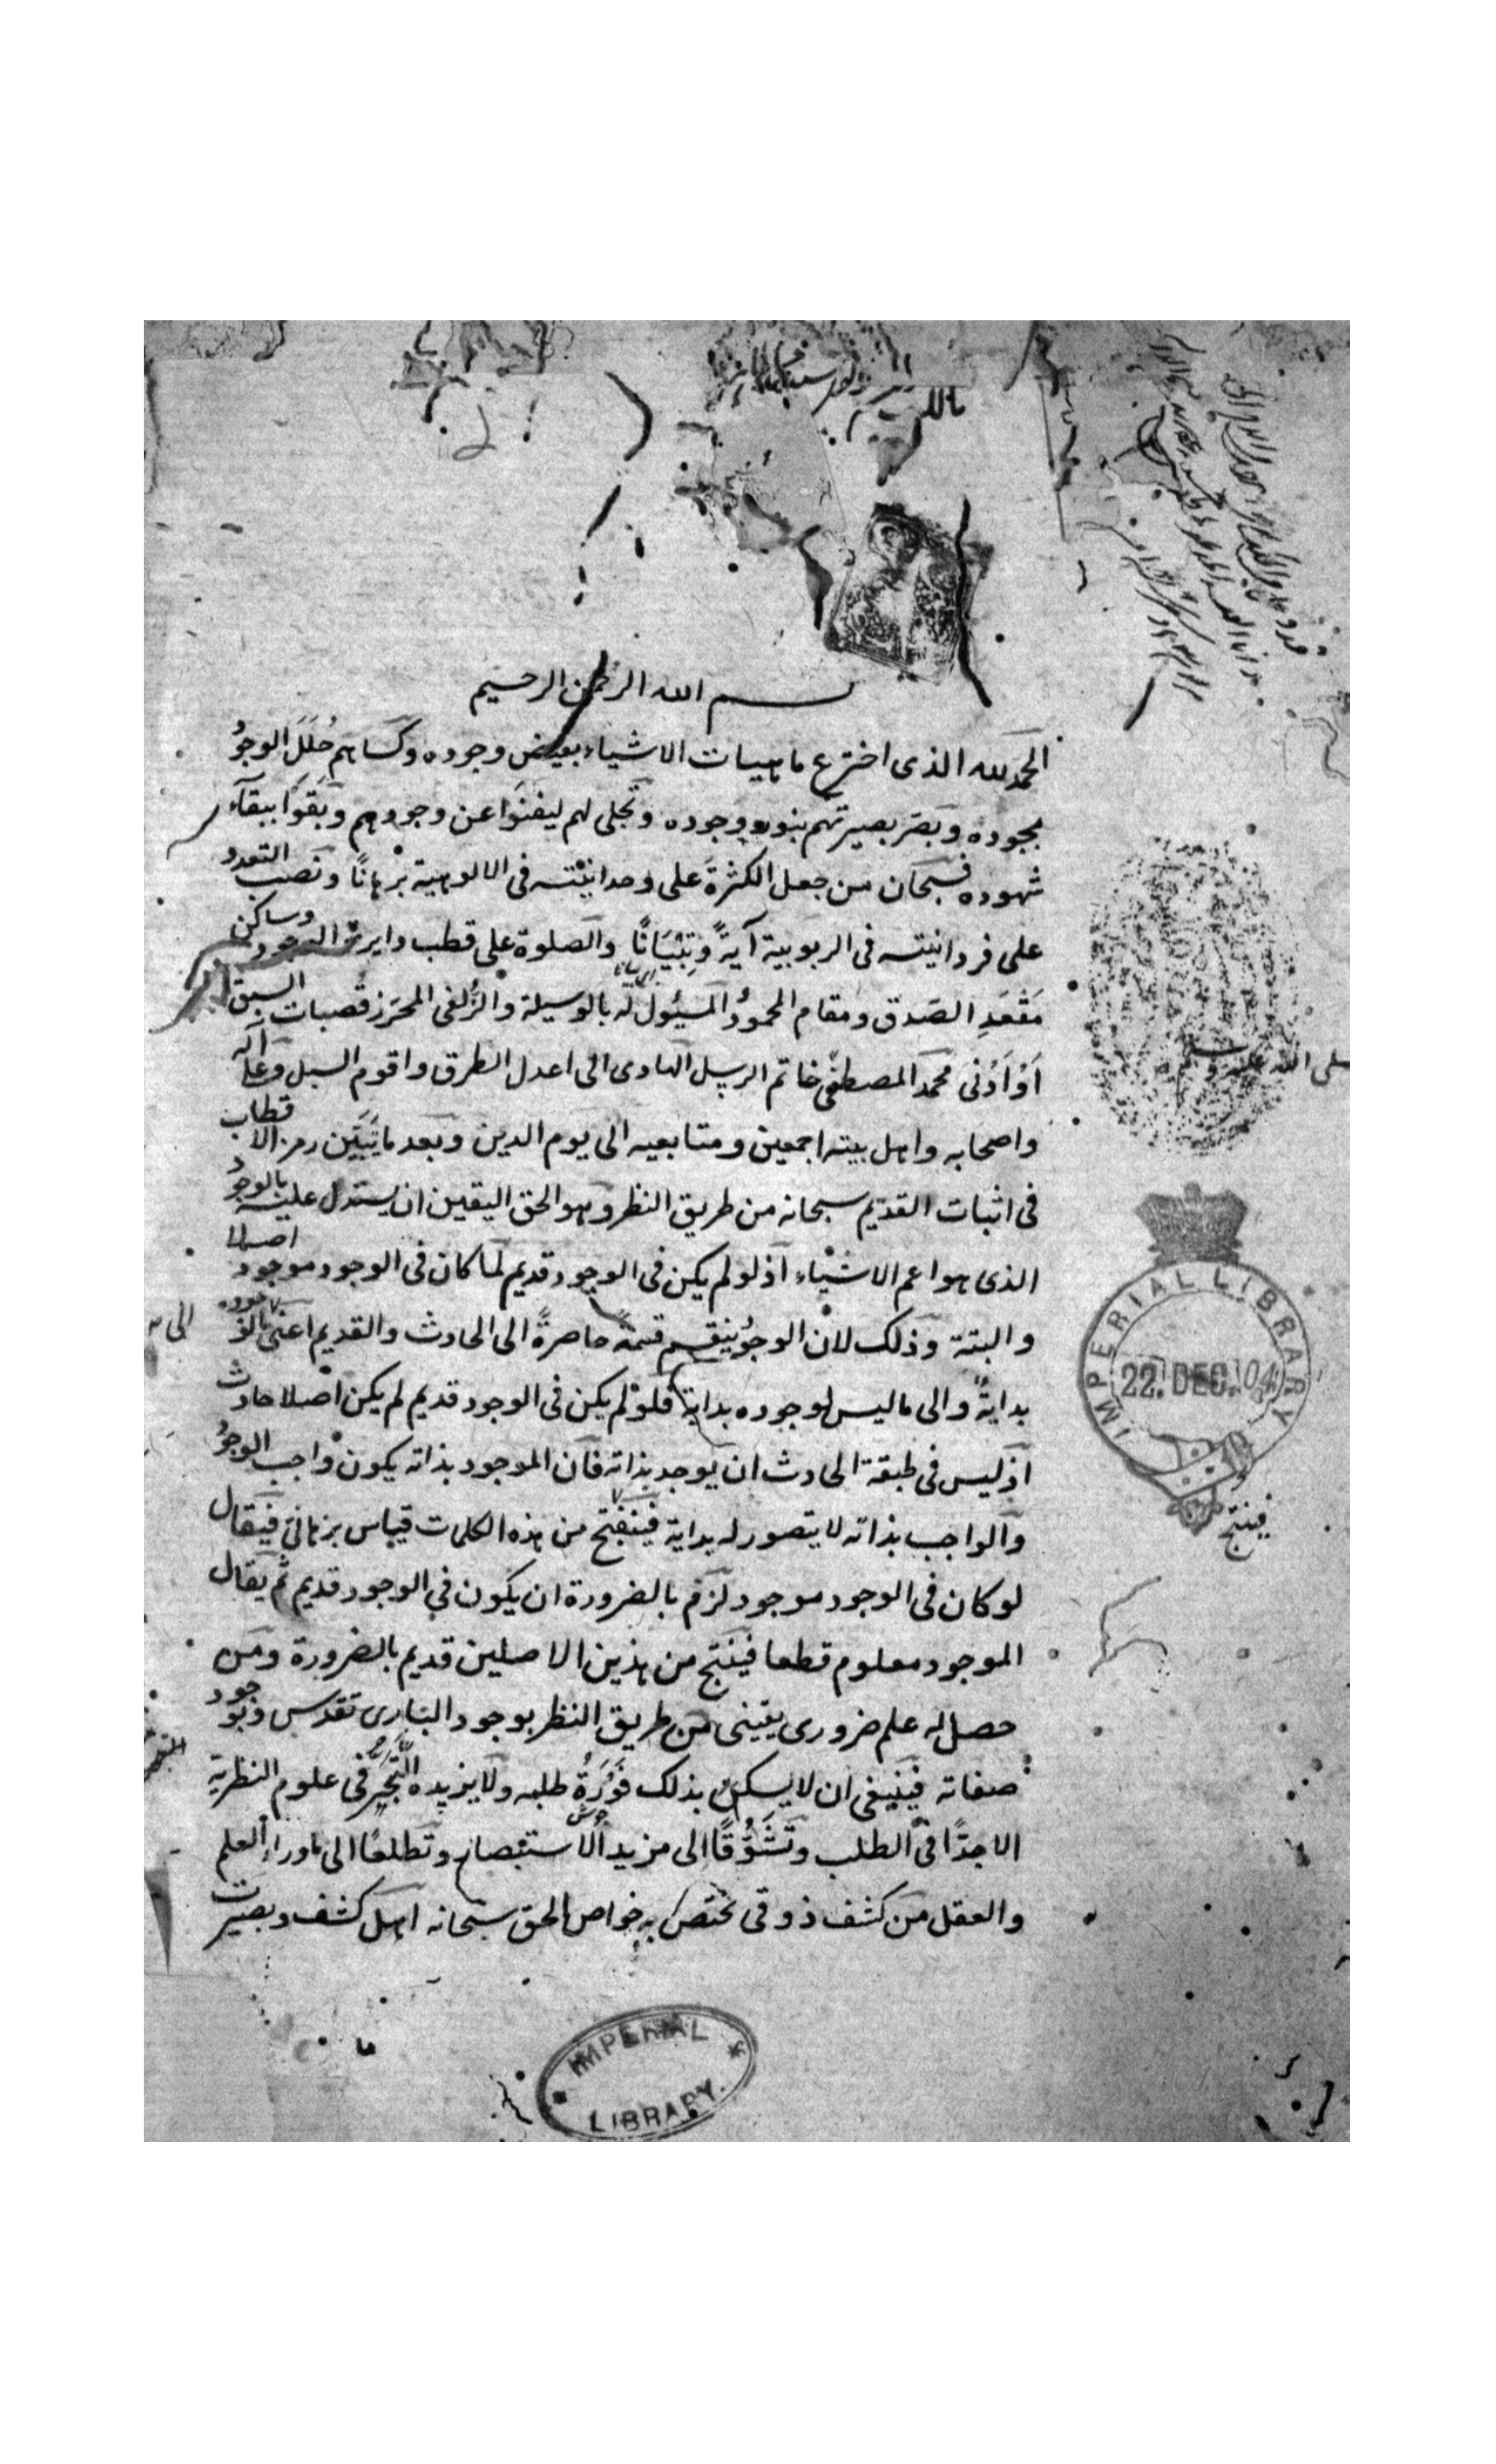 بسم الله الرحمن الرحيم
الحمد لله الذى اخترع ماهيات الاشياء بفيض وجوده وكساهم حُلَلَ الوجود
بجوده وبصّر بصيرتهم بنور وجوده وتجلى لهم ليفنَوا عن وجودهم وبَقَوا ببقآء
شهوده فسبحان من جعل الكثرةَ على وحدانيّته فى الالوهية برهانًا ونصب التعدد
على فردانيته فى الربوبية آيةً وتِبْيَانًا والصلوة على قطب دايرة الوجود وساكن
مَقْعَدِ الصّدق ومقام المحمود المسئول له بالوسيلة والزُلفى المحرَز قصبات السبق
اَوْ اَدْنى محمد المصطفى خاتم الرسل الهادى الى اعدل الطرق واقوم السبل وعلى آله
واصحابه واهل بيته اجمعين ومتابعيه الى يوم الدين وبعد ما تَبَيَّن رمز الاقطاب
فى اثبات القديم سبحانه من طريق النظر وهو الحق اليقين ان يستدل عليه بالوجود
الذى هو اعم الاشياء اذ لو لم يكن فى الوجود قديم لما كان فى الوجود موجود اصلا
والبتة وذلك لان الوجود ينقسم قسمة حاصرةً الى الحادث والقديم اعنى
بدايةً والى ما ليس لوجوده بداية فلو لم يكن فى الوجود قديم لم يكن اصلا حادث
اذ ليس فى طبقة الحادث ان يوجد بذاته فان الموجود بذاته يكون واجب الوجود
والواجب بذاته لا يتصور له بداية من هذه الكلمات قياس برهانى فيقال
لو كان فى الوجود موجود لزم بالضرورة ان يكون فى الوجود قديم ثم يقال
الموجود معلوم قطعا فينتج من هذين الاصلين قديم بالضرورة ومن
حصل له علم ضرورى يقينى من طريق النظر بوجود البارى تقدس وبوجود
صفاته فينبغى ان لا يسكن بذلك فَوْرَةُ طلبه ولا يزيده التبحر فى علوم النظرية
الا جدًا فى الطلب وتَشَوُّقًا الى مزيد الاستبصار وتطلعًا الى ماوراء العلم
والعقل من كشف ذوقى تختص به خواص الحق سبحانه اهل كشف وبصيرت
صلى الله عليه وسلم
فينتج
IMPERIAL LIBRARY
22. DEC. 04
IMPERIAL
LIBRARY.